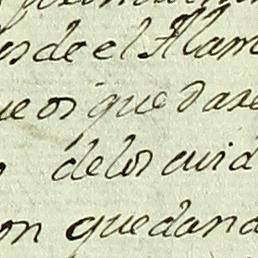 esde el Alam
ue os quedare
delos cuid
on quedand